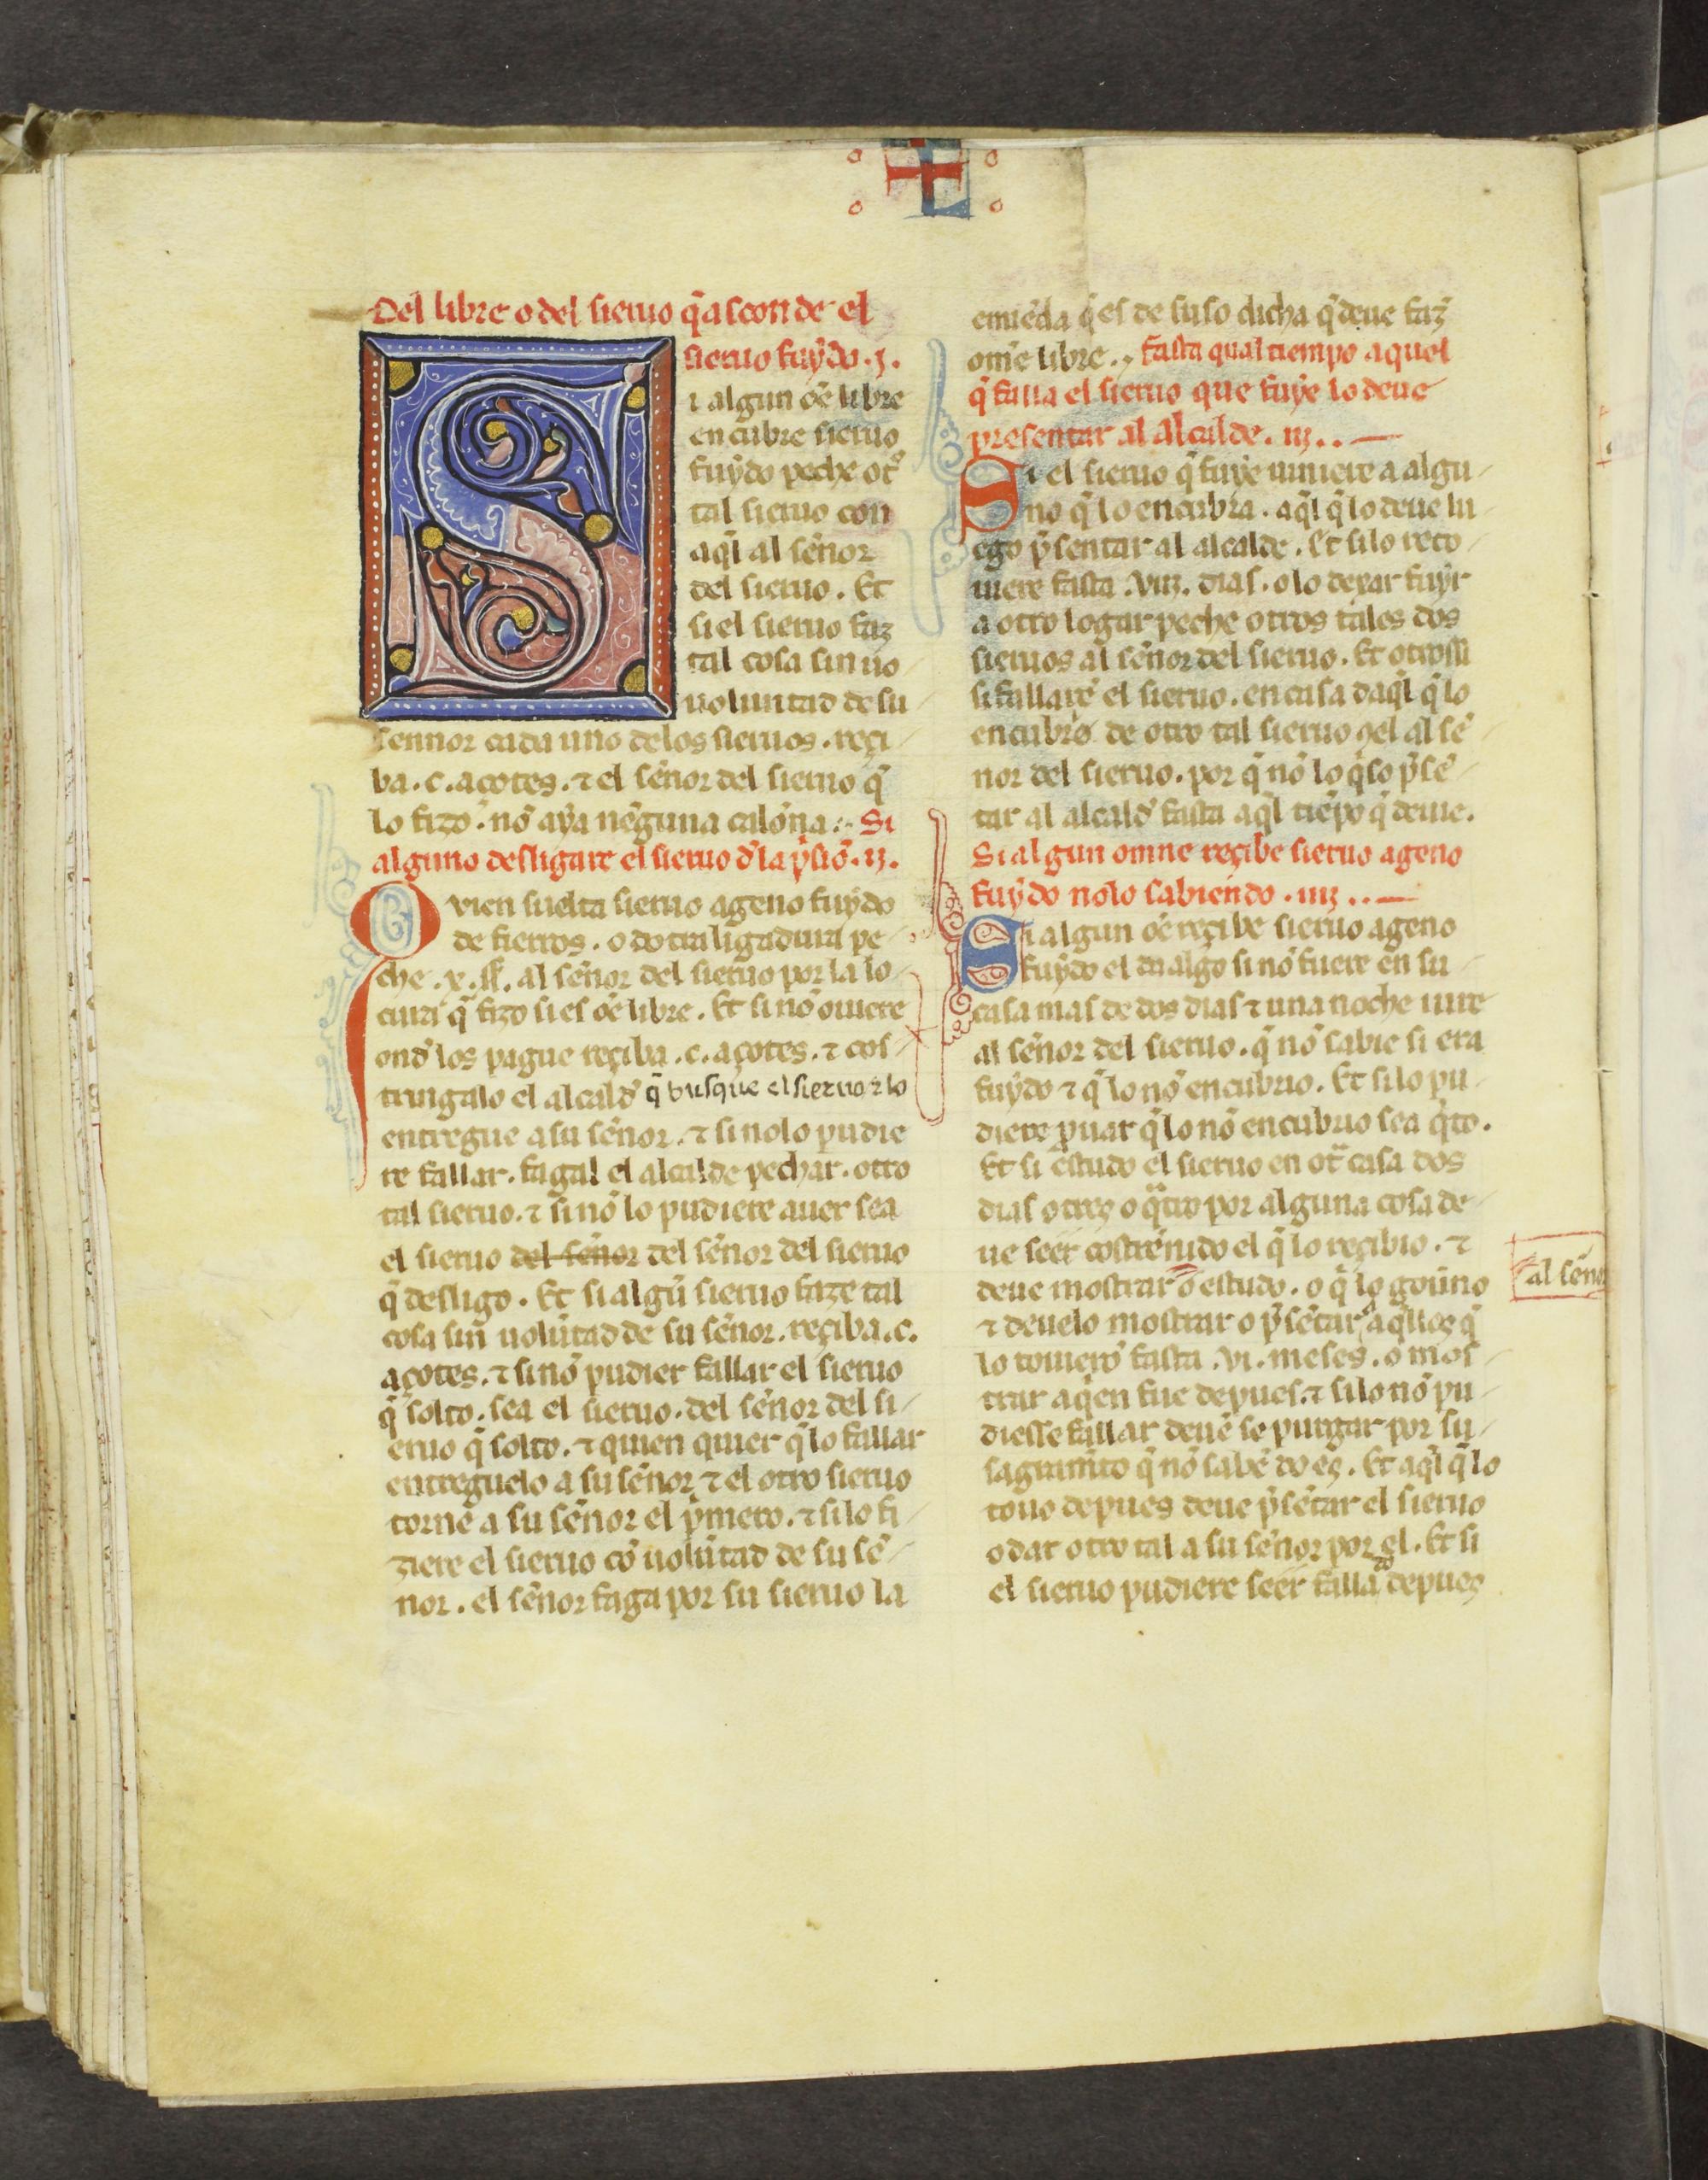 Del libre o del sieruo q̃ asconde el
sieruo fuẏdo .j.
Si algun oẽ libre
encubre sieruo
fuẏdo peche ot̃
tal sieruo con
aq̃l al sẽnor
del sieruo. Et
si el sieruo faz
tal cosa sin uo
uoluntad de su
sennor cada uno delos sieruos. reçi
ba .c. açotes. ⁊ el sẽnor del sieruo q̃
lo fizo. nõ aẏa nẽguna calõna. Si
alguno desligare el sieruo d̃ la p̃siõ. ij.
Quien suelta sieruo ageno fuẏdo
de fierros. o dotra ligadura pe
che .x. ſſ. al sẽnor del sieruo por la lo
cura q̃ fizo si es oẽ libre. Et si nõ ouiere
ond̃ los pague reçiba .c. açotes. ⁊ cos
tringalo el alcald̃ q̃ busque el sieruo ⁊ lo
entregue a su sẽnor. ⁊ si nolo pudie
re fallar. fagal el alcalde pechar. otro
tal sieruo. ⁊ si nõ lo pudiere auer sea
el sieruo del sẽnor del sẽnor del sieruo
q̃ desligo. Et si algũ sieruo faze tal
cosa sin uolũtad de su sẽnor. reçiba .c.
açotes. ⁊ si nõ pudier fallar el sieruo
q̃ solto. sea el sieruo. del sẽnor del si
eruo q̃ solto. ⁊ quien quier q̃ lo fallar
entreguelo a su sẽnor ⁊ el otro sieruo
torne a su sẽnor el p̃mero. ⁊ silo fi
ziere el sieruo cõ uolũtad de su sẽ
nor. el sẽnor faga por su sieruo la
emiẽda q̃ es de suso dicha q̃ deue faz̃
om̃e libre. Fasta qual tiempo aquel
q̃ falla el sieruo que fuẏe lo deue
presentar al Alcalde. iij.
Si el sieruo q̃ fuẏe uiniere a algu
no q̃ lo encubra. aq̃l q̃ lo deue lu
ego p̃sentar al alcalde. Et silo reto
uiere fasta .viij. dias. o lo dexar fuẏr
a otro logar peche otros tales dos
sieruos al sẽnor del sieruo. Et otrossi
si fallarẽ el sieruo. en casa daq̃l q̃ lo
encubro de otro tal sieruo ꝯel al sẽ
nor del sieruo. por q̃ nõ lo q̃so p̃sẽ
tar al alcald̃ fasta aq̃l tiẽpo q̃ deuie.
Si algun omne reçibe sieruo ageno
fuẏdo nolo sabiendo. iiij.
Si algun oẽ reçibe sieruo ageno
fuẏdo el dã algo si nõ fuere en su
casa mas de dos dias ⁊ una noche iure
al sẽnor del sieruo. q̃ nõ sabie si era
fuẏdo ⁊ q̃ lo nõ encubrio. Et silo pu
diere p̃uar q̃ lo nõ encubrio sea q̃to.
Et si estudo el sieruo en ot̃ casa dos
dias o tres o q̃tro por alguna cosa de
ue seer costrẽnido el q̃ lo reçibio. ⁊
deue mostrar o estudo. o q̃ lo gou̾no
⁊ deuelo mostrar o p̃sẽtar a q̃llos q̃
al sẽno
lo touierõ fasta .vi. meses. o mos
trar aq̃en fue depues. ⁊ silo nõ pu
diesse fallar deue se purgar por su
sagram̃to q̃ nõ sabẽ do es. Et aq̃l q̃ lo
touo depues deue p̃sẽtar el sieruo
o dar otro tal a su sẽnor por el. Et si
el sieruo pudiere seer fallado depues